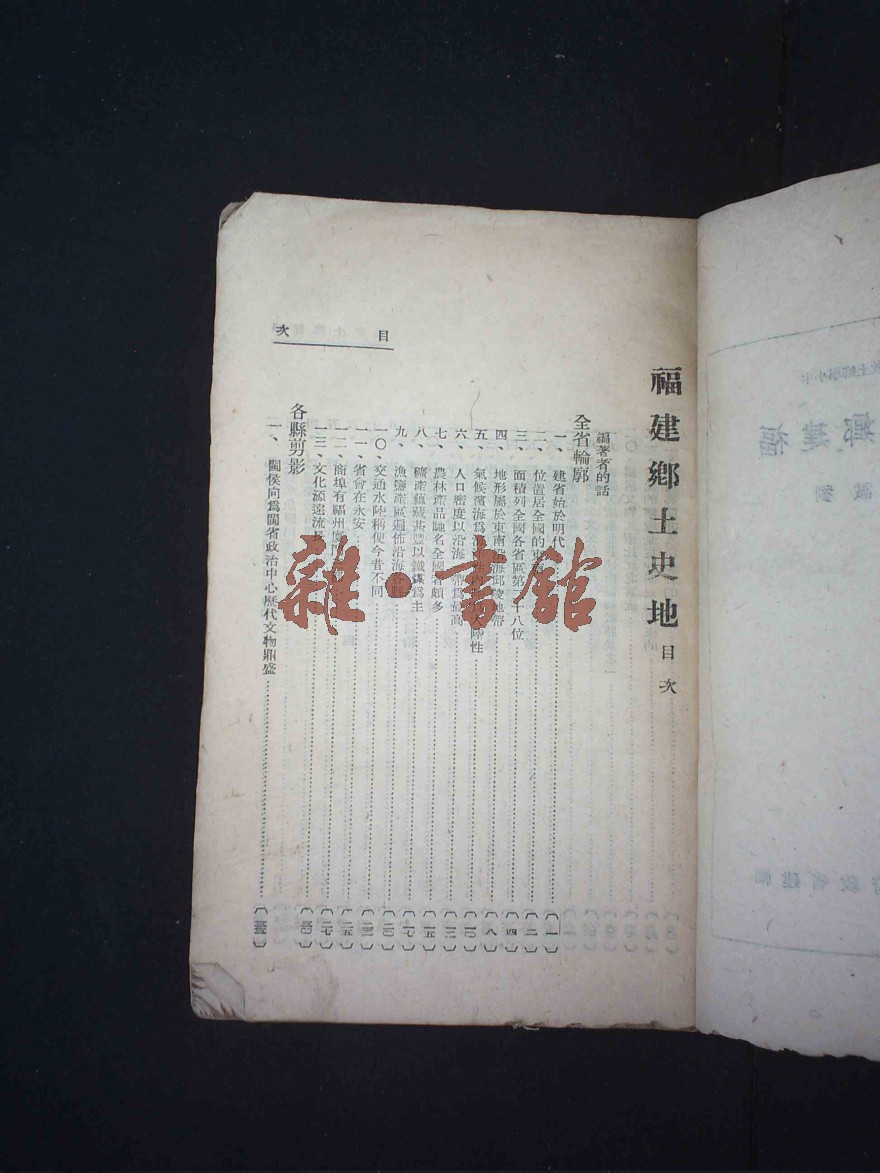 福建鄉土史地 目次
編著者的話
全省輪廓
一、建省始於明代 (一)
二、位置居全國的東南 (二)
三、面積列全國各省區第二十八位 (四)
四、地形屬於東南沿海邱陵地帶 (八)
五、氣候濱海為海洋性內地大陸性
六、人口密度以沿海一帶為最高 (一三)
七、農林產品馳名全國者頗多 (一五)
八、礦產蘊藏甚豐以鐵煤為主 (一七)
九、漁鹽產區遍佈沿海各縣 (二〇)
一〇、交通水陸稱便今昔不同
一一、省會在永安 (二五)
一二、商埠有福州廈門 (二七)
一三、文化源遠流長
各縣剪影
一、閩侯向為閩省政治中心歷代文物鼎盛
目次
雜·書館